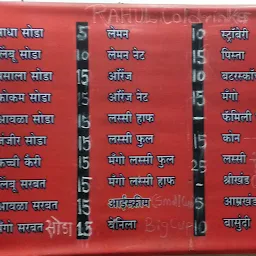 RAHUL Coldrinks
साधा सोडा 5 लेमन 10 स्ट्रॉबेरी
लिंबू सोडा 10 लेमन नेट 15 पिस्ता
मसाला सोडा 15 ऑरेंज 10 बटरस्कॉ
कोकम सोडा 15 ऑरेंज नेट 15 मँगो
आवळा सोडा 15 लस्सी हाफ – फॅमिली
जंजीर सोडा 15 लस्सी फुल 15 कोन
कच्ची कैरी 15 मँगो लस्सी फुल 25 लस्सी
लिंबू सरबत 15 मँगो लस्सी हाफ – श्रीखंड
आवळा सरबत 15 आईस्क्रीम Small Cup 5 आम्रखं
मँगो सरबत सोडा 15 व्हॅनिला Big Cup 10 बासुंदी